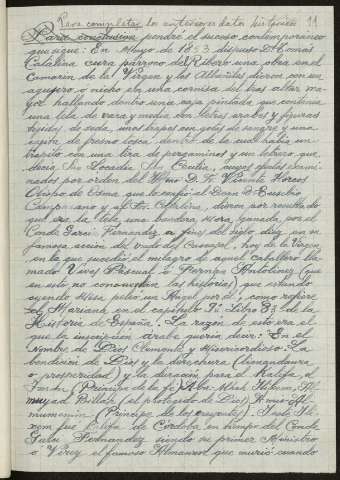 Para completar los anteriores datos históricos 11
pondré el suceso contemporáneo
que sigue: En Mayo de 1853 dispuso D. Tomás
Catalina cura párroco del Ribero una obra en el
Camarín de la Virgen y los Albañiles dieron con un
agujero o nicho en una cornisa del tras altar ma-
yor hallando dentro una caja pintada que contenía
una tela de vara y media con letras árabes y figuras
tejidas de seda, unos trapos con gotas de sangre y una
de fresno tosca, dentro de la cual había un
trapito con una tira de pergamino y un letrero que
decía
nados por orden del Ilmo. D. F. Vicente Horcos
Obispo de Osma que lo confió al Dean D. Eusebio
Campuzano y al Sr. Catalina, dieron por resultado
qué era la tela, una bandera Mora, ganada por el
Conde Garci Fernández a fines del siglo diez, en su
famosa acción del vado del Cascajal, hoy de la Virgen,
en la que sucedió el milagro de aquel caballero lla-
mado Vivas Pascual o Fernán Antolínez (que
en esto no concuerdan las historias) que estando
oyendo Misa peleó un Angel por él, como refiere
el Mariana en el capítulo
Historia de España. La razón de esto era el
que la inscripción árabe quería decir: "En el
Nombre de Dios Clemente y Misericordioso: La
bendición de Dios y la
o prosperidad) y la duración para el Kalifa, el
Imán (Príncipe de la fé) Abu
Billah (el protegido de Dios) Amir Al-
mumenin (Príncipe de los creyentes).
fué Califa de Córdoba en tiempo del Conde
Garci Fernández siendo su primer Ministro
o Visir el famoso Almanzor que murió cuando